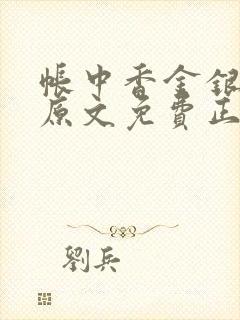 帳中香金銀
原文免費正
劉兵